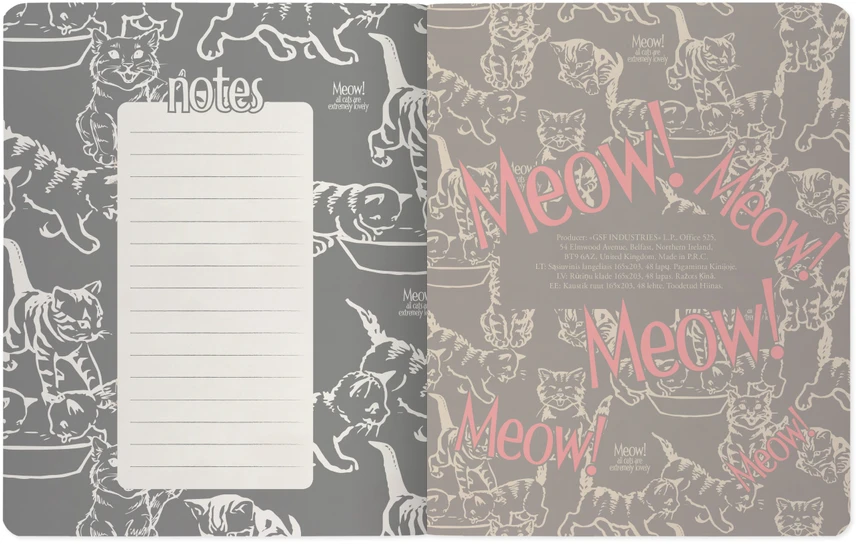 notes
Meow!
all cats are
extremely lovely
Meow!
all cats are
extremely lovely
Meow!
all cats are
extremely lovely
Meow!
Meow!
Producer: «GSF INDUSTRIES» L.P., Office 525,
54 Elmwood Avenue, Belfast, Northern Ireland,
BT9 6AZ, United Kingdom. Made in P.R.C.
LT: Sąsiuvinis langeliais 165x203, 48 lapų. Pagaminta Kinijoje.
LV: Rūtiņu klade 165x203, 48 lapas. Ražots Ķīnā.
EE: Kaustik ruut 165x203, 48 lehte. Toodetud Hiinas.
Meow!
Meow!
Meow!
all cats are
extremely lovely
Meow!